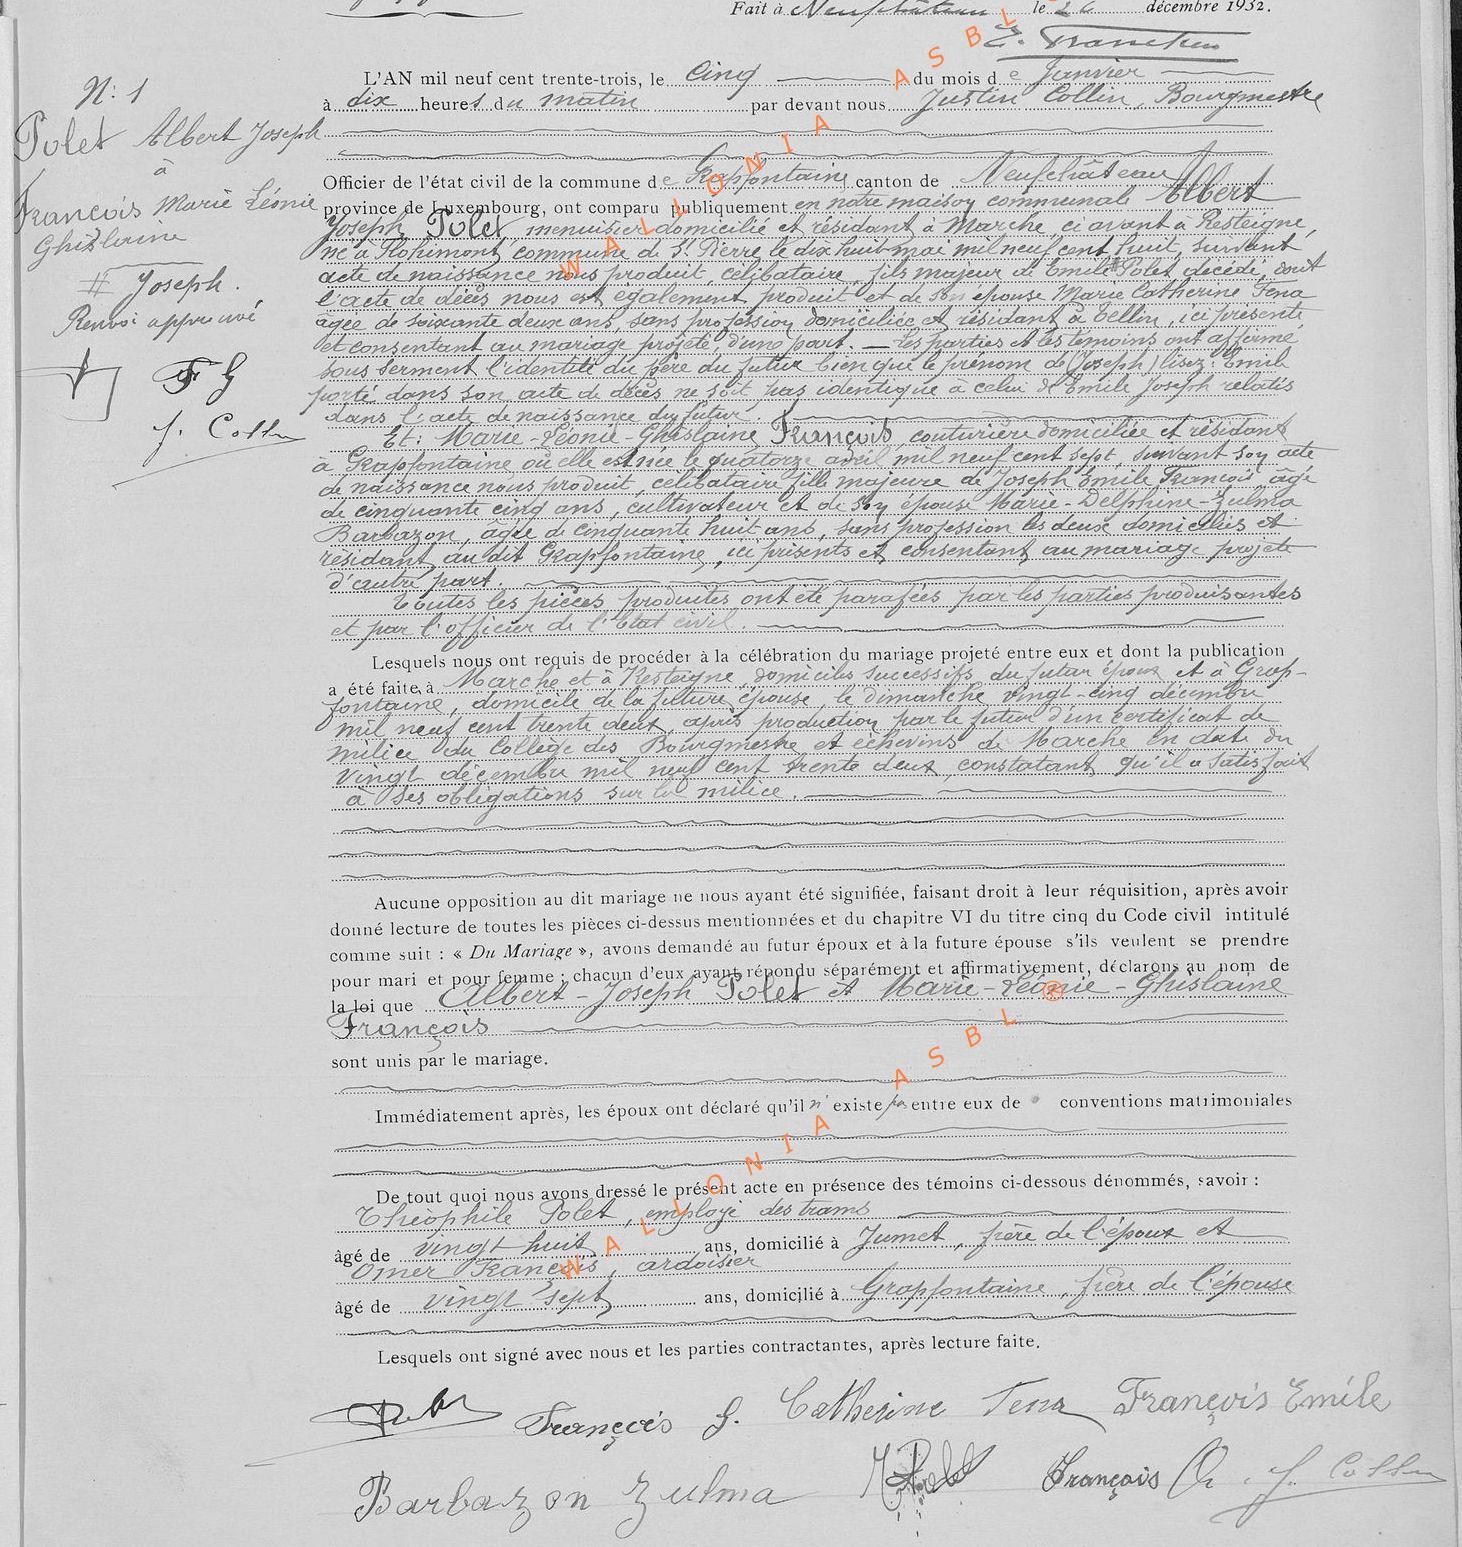 Fait à Neufchâteau le 26 décembre 1932.
N: 1
Polet Albert Joseph
à
François Marie Léonie
Ghislaine
# Joseph.
Renvoi approuvé
F G
J. Collin
L'AN mil neuf cent trente-trois, le cinq du mois de Janvier
à dix heures du matin par devant nous Justin Collin, Bourgmestre
Officier de l'état civil de la commune de Grapfontaine canton de Neufchâteau
province de Luxembourg, ont comparu publiquement en notre maison communale Albert
Joseph Polet, menuisier domicilié et résidant à Marche, ci avant à Resteigne,
né à Hohimont, commune de St Pierre le dix huit mai mil neuf cent huit, suivant
acte de naissance nous produit, célibataire, fils majeur de Emile # Polet décédé, dont
l'acte de décès nous est également produit et de son épouse Marie Catherine Tena
âgée de soixante deux ans, sans profession domiciliée et résidant à Tellin, ici présente
et consentant au mariage projeté, d'une part. — Les parties et les témoins ont affirmé
sous serment l'identité du père du futur bien que le prénom de (Joseph) lisez: Emile
porté dans son acte de décès ne soit pas identique à celui de Emile Joseph relatés
dans l'acte de naissance du futur.
Et: Marie-Léonie-Ghislaine François, couturière domiciliée et résidant
à Grapfontaine où elle est née le quatorze avril mil neuf cent sept, suivant son acte
de naissance nous produit, célibataire fille majeure de Joseph Emile François âgé
de cinquante cinq ans, cultivateur et de son épouse Marie-Delphine-Zulma
Barbazon, âgée de cinquante huit ans, sans profession les deux domiciliés et
résidant au dit Grapfontaine, ici présents et consentant au mariage projeté
d'autre part.
Toutes les pièces produites ont été parafées par les parties produisantes
et par l'officier de l'Etat civil.
Lesquels nous ont requis de procéder à la célébration du mariage projeté entre eux et dont la publication
a été faite à Marche et à Resteigne, domiciles successifs du futur époux et à Grap-
fontaine, domicile de la future épouse le dimanche vingt-cinq décembre
mil neuf cent trente deux, après production par le futur d'un certificat de
milice du Collège des Bourgmestre et échevins de Marche en date du
vingt décembre mil neuf cent trente deux constatant qu'il a satisfait
à ses obligations sur la milice.
Aucune opposition au dit mariage ne nous ayant été signifiée, faisant droit à leur réquisition, après avoir
donné lecture de toutes les pièces ci-dessus mentionnées et du chapitre VI du titre cinq du Code civil intitulé
comme suit : « Du Mariage », avons demandé au futur époux et à la future épouse s'ils veulent se prendre
pour mari et pour femme ; chacun d'eux ayant répondu séparément et affirmativement, déclarons au nom de
la loi que Albert-Joseph Polet et Marie-Léonie-Ghislaine
François
sont unis par le mariage.
Immédiatement après, les époux ont déclaré qu'il n'existe pas entre eux de conventions matrimoniales
De tout quoi nous avons dressé le présent acte en présence des témoins ci-dessous dénommés, savoir :
Théophile Polet, employé des trams
âgé de vingt huit ans, domicilié à Jumet, frère de l'époux et
Omer François, ardoisier
âgé de vingt sept ans, domicilié à Grapfontaine, frère de l'épouse
Lesquels ont signé avec nous et les parties contractantes, après lecture faite.
François G. Catherine Tena François Emile
Barbazon Zulma Polet François O. J. Collin
WALLONIA ASBL
WALLONIA ASBL ®